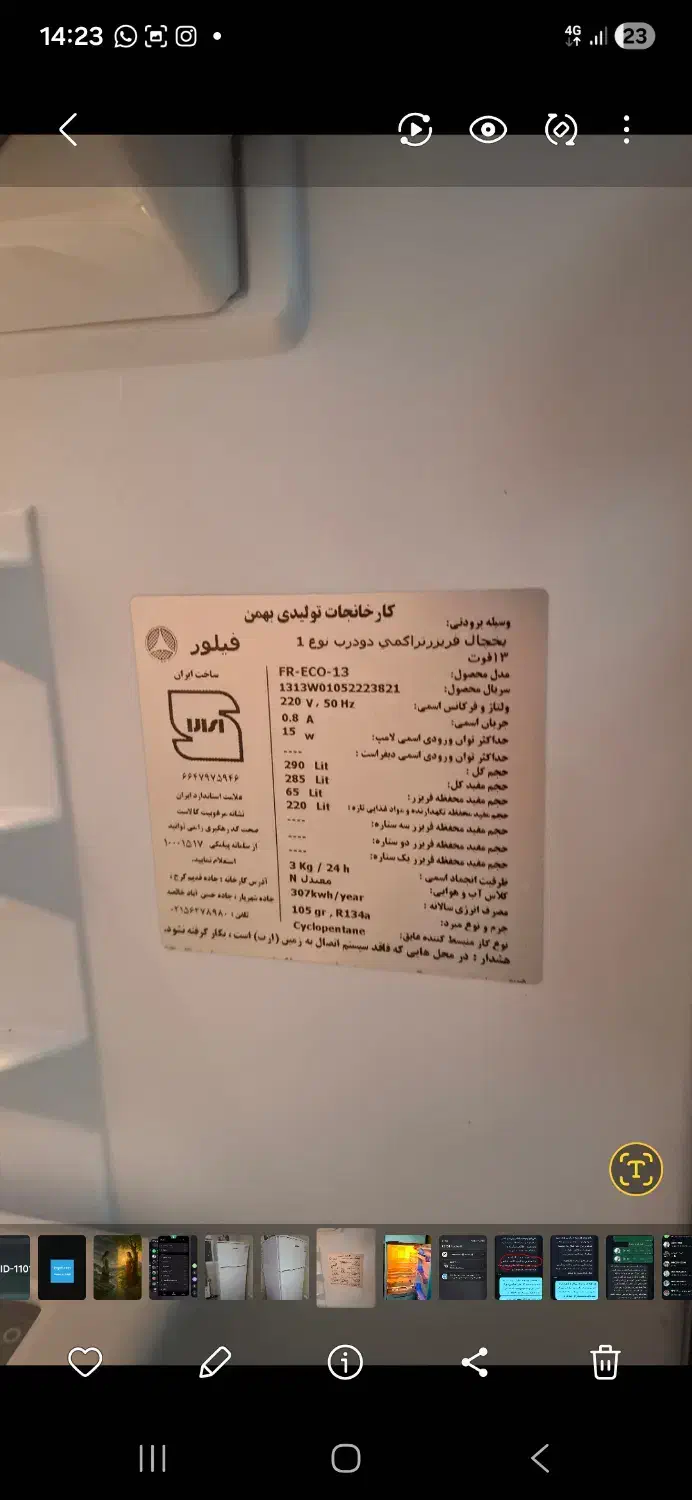 14:23
4G
23
کارخانجات تولیدی بهمن
فیلور
ساخت ایران
وسیله برودتی:
یخچال فریزرتراکمي دودرب نوع 1
۱۳فوت
مدل محصول: FR-ECO-13
سریال محصول: 1313W01052223821
ولتاژ و فرکانس اسمی: 220 V، 50 Hz
جریان اسمی: 0.8 A
حداکثر توان ورودی اسمی لامپ: 15 w
حداکثر توان ورودی اسمی دیفراست: ----
حجم کل: 290 Lit
حجم مفید کل: 285 Lit
حجم مفید محفظه فریزر: 65 Lit
حجم مفید محفظه نگهدارنده و مواد غذایی تازه: 220 Lit
حجم مفید محفظه فریزر سه ستاره: ----
حجم مفید محفظه فریزر دو ستاره: ----
حجم مفید محفظه فریزر یک ستاره: ----
ظرفیت انجماد اسمی: 3 Kg / 24 h
کلاس آب و هوایی: معتدل N
مصرف انرژی سالانه: 307kwh/year
جرم و نوع مبرد: 105 gr , R134a
نوع گاز منبسط کننده عایق: Cyclopentane
۶۶۴۷۹۷۵۹۴۶
علامت استاندارد ایران
نشانه مرغوبیت کالاست
صحت کد رهگیری را می توانید
از سامانه پیامکی ۱۰۰۰۱۵۱۷
استعلام نمایید.
آدرس کارخانه: جاده قدیم کرج،
جاده شهریار، جاده حسن آباد خالصه
تلفن: ۰۲۱۵۶۲۷۸۹۸۰
هشدار: در محل هایی که فاقد سیستم اتصال به زمین (ارت) است، بکار گرفته نشود.
T
ID-110